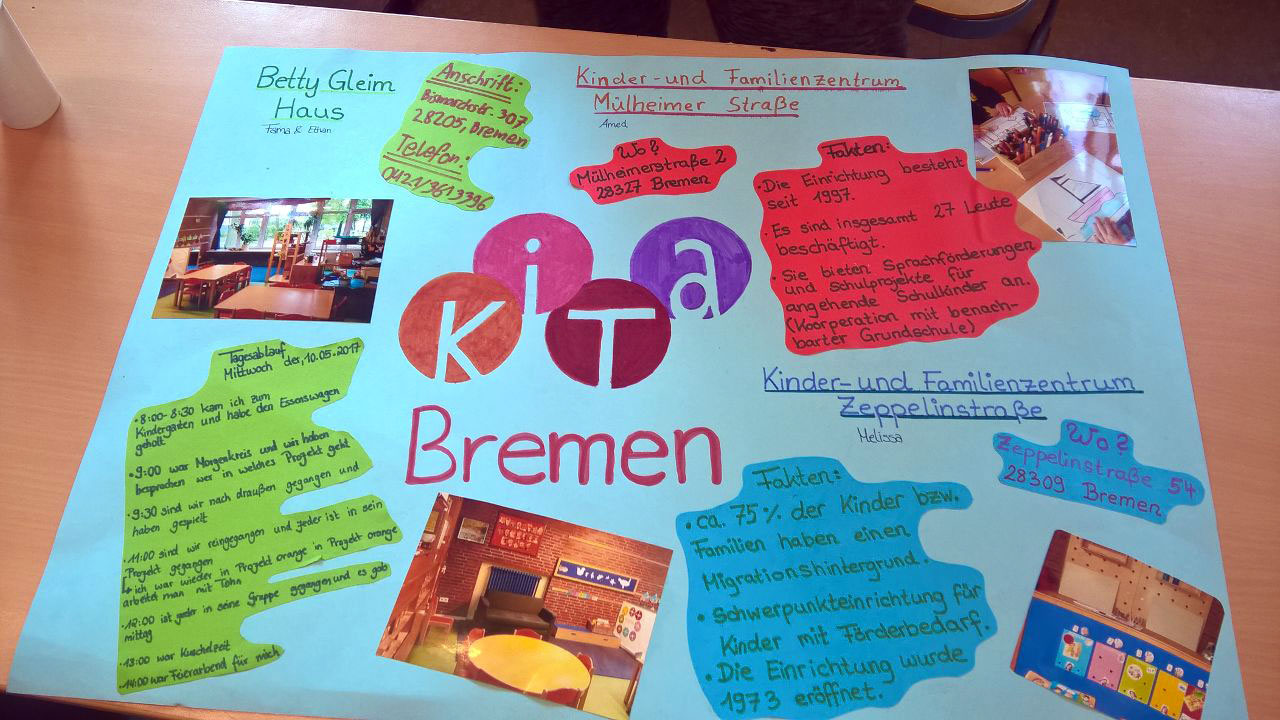 Betty Gleim
Haus
Fatma & Ethan
Anschrift:
Bismarckstr. 307
28205, Bremen
Telefon:
0421/3613396
Kinder- und Familienzentrum
Mülheimer Straße
Amed
Wo?
Mülheimerstraße 2
28327 Bremen
Fakten:
• Die Einrichtung besteht
seit 1997.
• Es sind insgesamt 27 Leute
beschäftigt.
• Sie bieten Sprachförderungen
und Schulprojekte für
angehende Schulkinder an.
(Koorperation mit benach-
barter Grundschule)
KiTa
Bremen
Tagesablauf
Mittwoch der, 10.05.2017
• 8:00-8:30 kam ich zum
Kindergarten und habe den Essenswagen
geholt
• 9:00 war Morgenkreis und wir haben
besprochen wer in welches Projekt geht
• 9:30 sind wir nach draußen gegangen und
haben gespielt
• 11:00 sind wir reingegangen und jeder ist in sein
Projekt gegangen
↳ ich war wieder in Projekt orange in Projekt orange
arbeitet man mit Tohn
• 12:00 ist jeder in seine Gruppe gegangen und es gab
mittag
• 13:00 war Kuschelzeit
• 14:00 war Feierarbend für mich
Kinder- und Familienzentrum
Zeppelinstraße
Melissa
Wo?
Zeppelinstraße 54
28309 Bremen
Fakten:
• ca. 75% der Kinder bzw.
Familien haben einen
Migrationshintergrund.
• Schwerpunkteinrichtung für
Kinder mit Förderbedarf.
• Die Einrichtung wurde
1973 eröffnet.